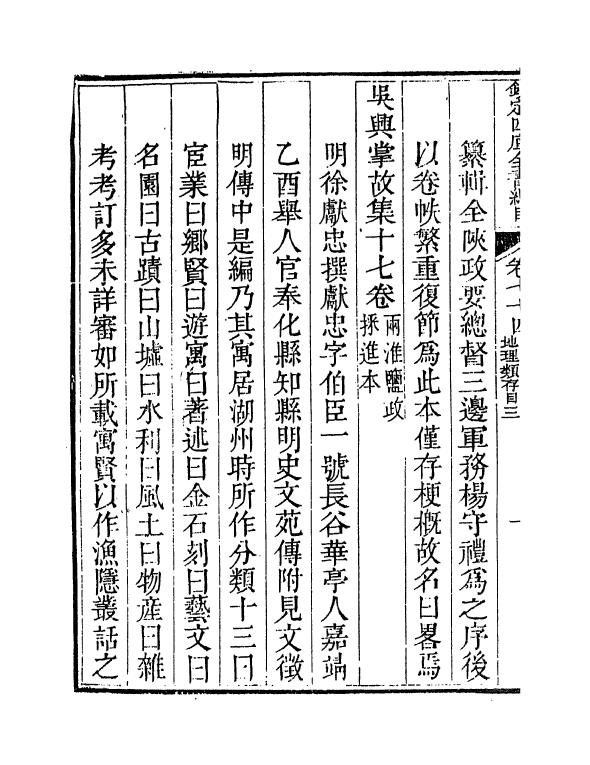 欽定四庫全書總目 卷七十四 地理類存目三 一
纂輯全陜政要總督三邊軍務楊守禮為之序後
以卷帙繁重復節為此本僅存梗概故名曰畧焉
吳興掌故集十七卷 兩淮鹽政採進本
明徐獻忠撰獻忠字伯臣一號長谷華亭人嘉靖
乙酉舉人官奉化縣知縣明史文苑傳附見文徵
明傳中是編乃其寓居湖州時所作分類十三曰
宦業曰鄉賢曰遊寓曰著述曰金石刻曰藝文曰
名園曰古蹟曰山墟曰水利曰風土曰物產曰雜
考考訂多未詳審如所載寓賢以作漁隱叢話之